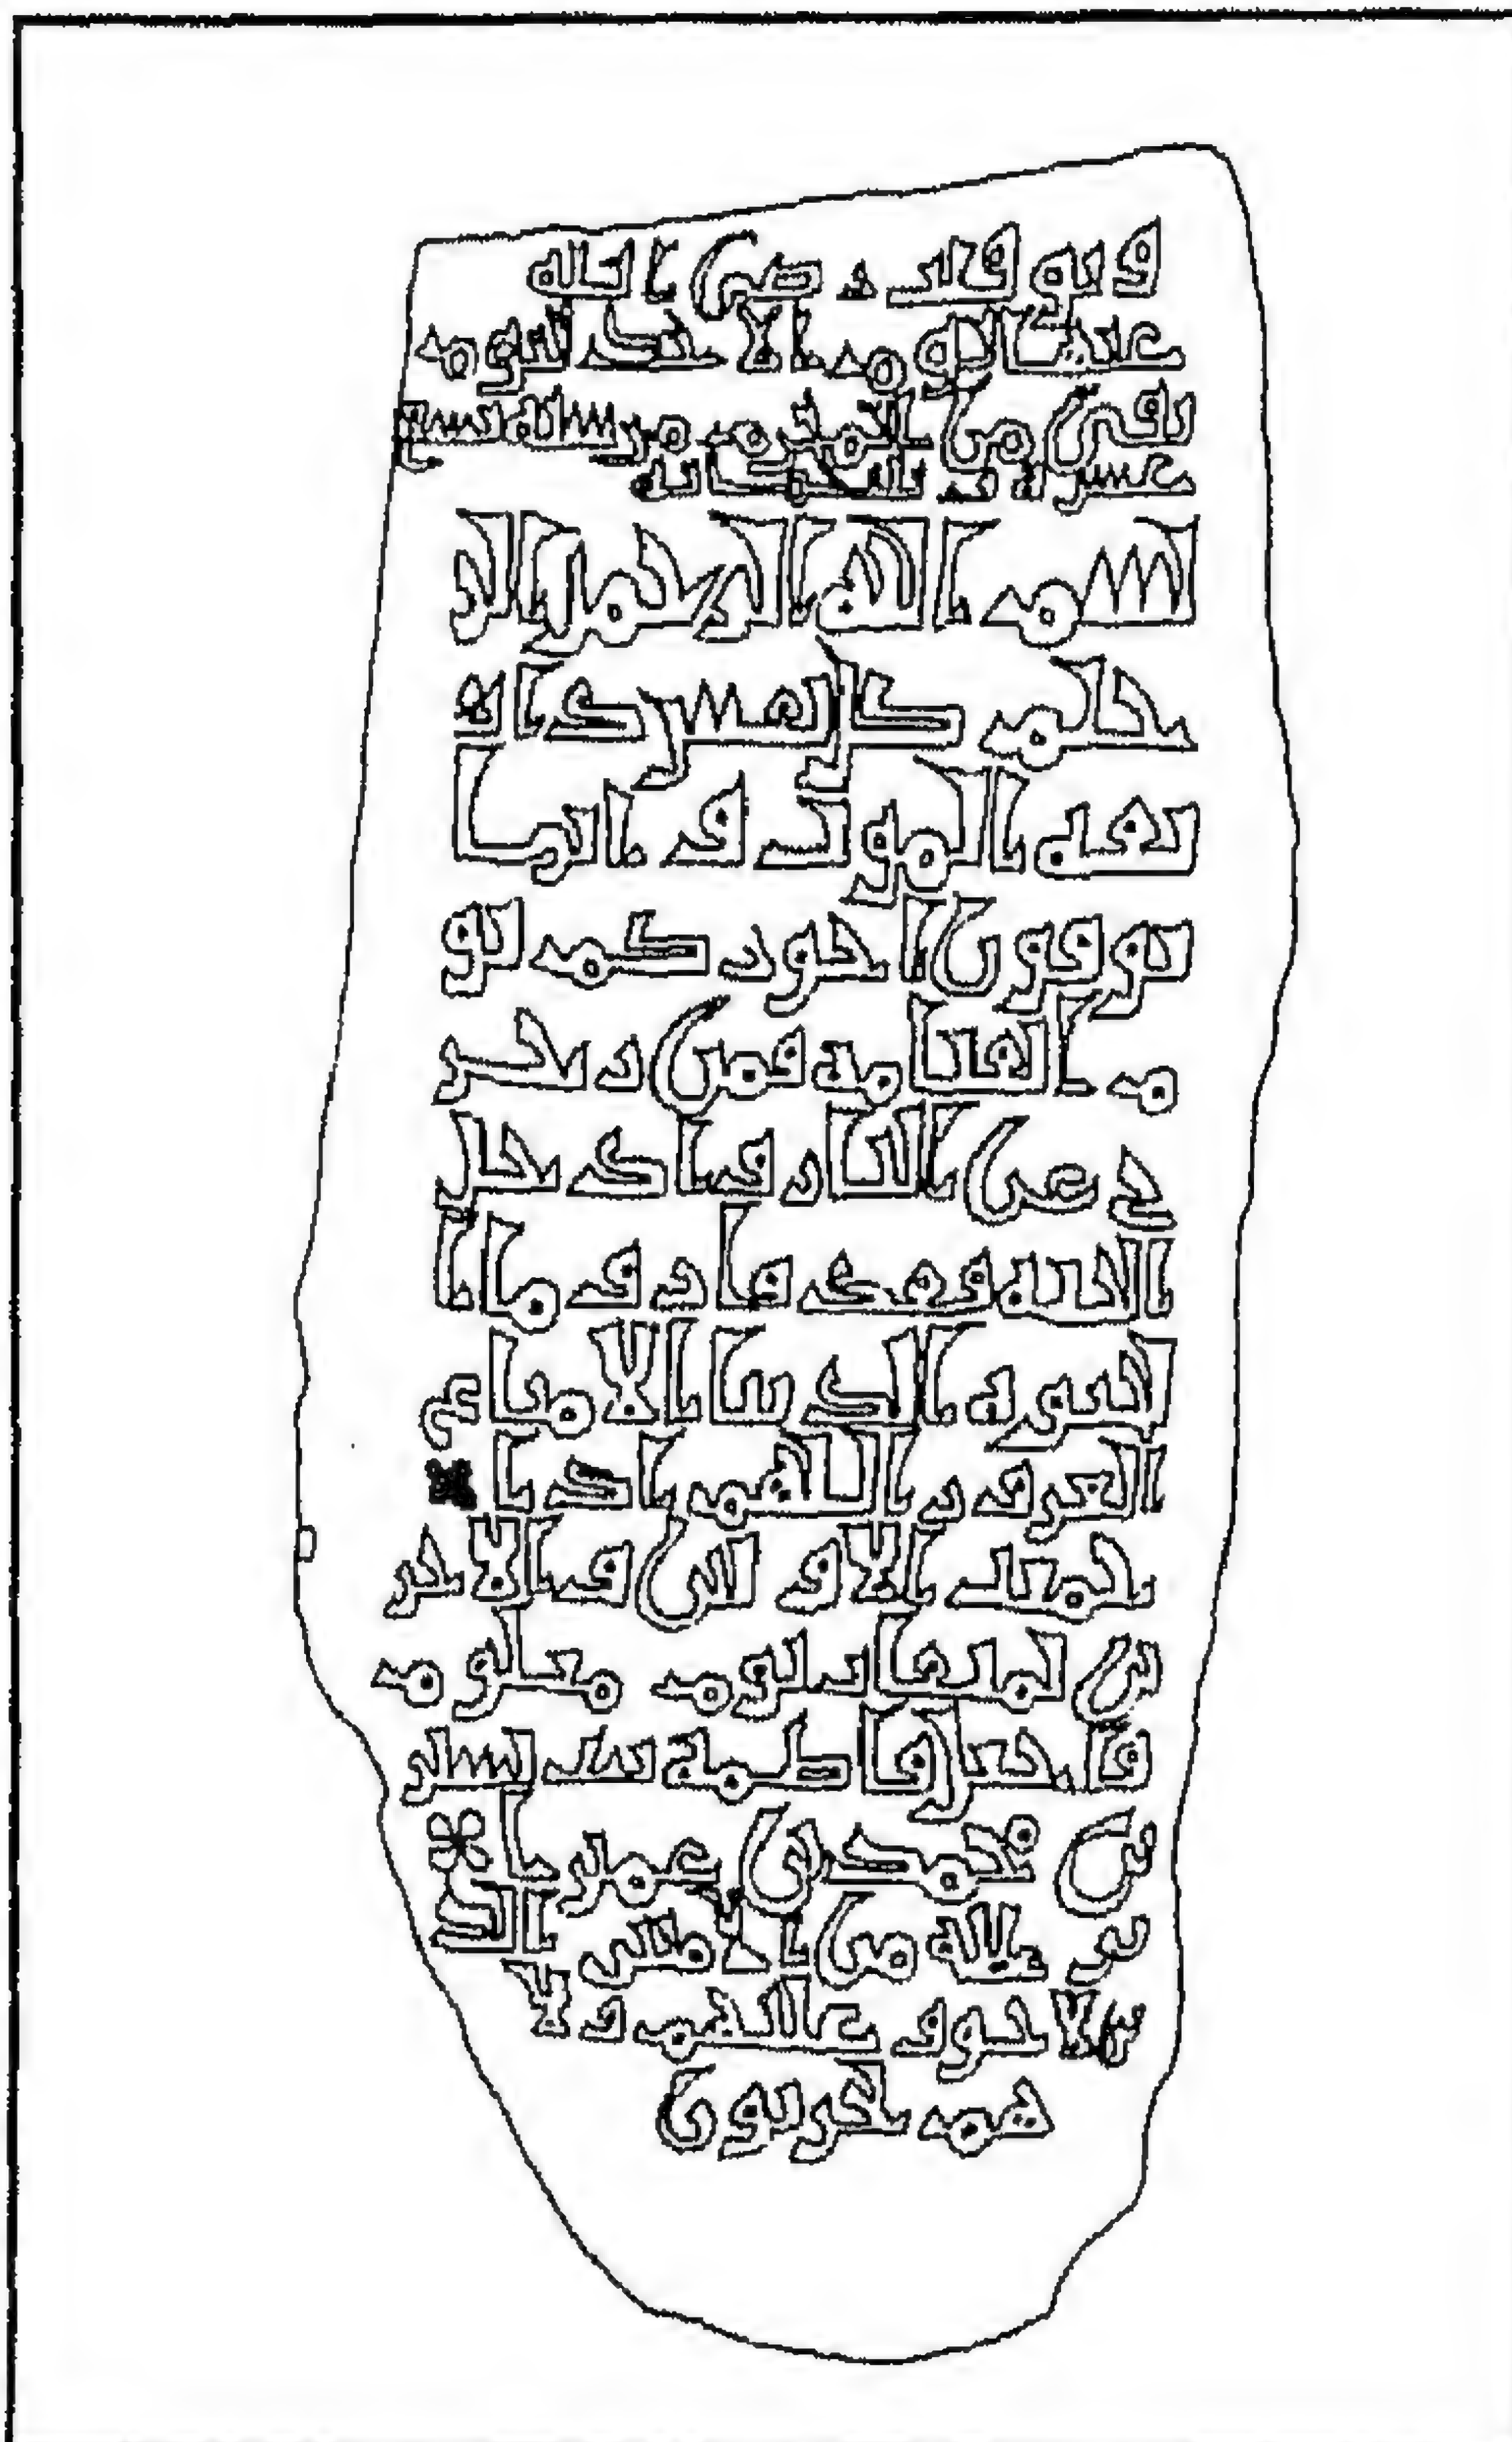 وتوفيت رضى الله
عنها يوم الاحد ليوم
بقى من المحرم من سنة تسع
عشرة و ثلثمائة
بسم الله الرحمن الر
حيم كل نفس ذا
ئقة الموت و انما
توفون اجوركم يو
م القيامة فمن زحز
ح عن النار وادخل
الجنة فقد فاز وما ا
لحيوة الدنيا الا متاع
الغرور اللهم اذا
جمعت الاولين والاخر
ين لميقات يوم معلوم
فاجعل فاطمة بنت
بن محمد بن عمر
من الامنين الذ
ين لا خوف عليهم ولا
هم يحزنون